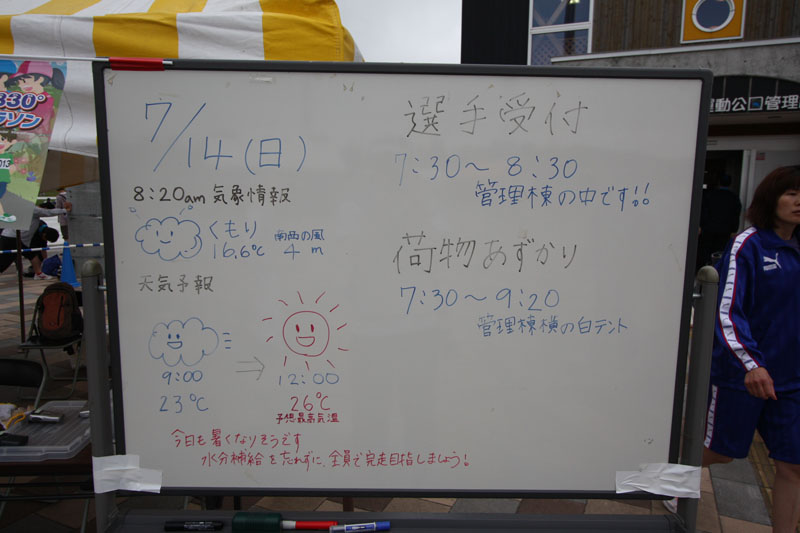 7/14(日)
8:20am 気象情報
くもり
16.6℃
南西の風
4m
天気予報
9:00
23℃
12:00
26℃
予想最高気温
今日も暑くなりそうです
水分補給を忘れずに、全員で完走目指しましょう!
選手受付
7:30〜8:30
管理棟の中です!!
荷物あずかり
7:30〜9:20
管理棟横の白テント
330°
ラソン
運動公園管理